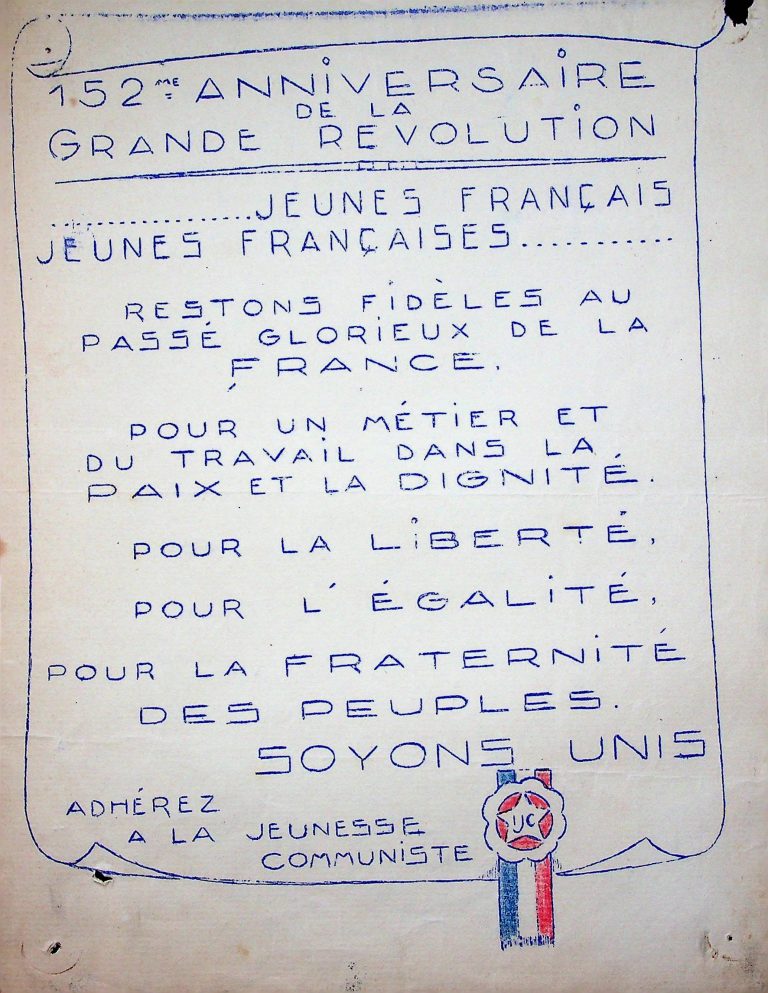 152ME ANNIVERSAiRE
DE LA
GRANDE REVOLUTiON
...............JEUNES FRANÇAIS
JEUNES FRANÇAISES...........
RESTONS FiDÈLES AU
PASSÉ GLORiEUX DE LA
FRANCE.
POUR UN MÉTiER ET
DU TRAVAiL DANS LA
PAIX ET LA DIGNITÉ.
POUR LA LiBERTÉ,
POUR L'ÉGALiTÉ,
POUR LA FRATERNiTÉ
DES PEUPLES.
SOYONS UNIS
ADHÉREZ
A LA JEUNESSE
COMMUNISTE
JC